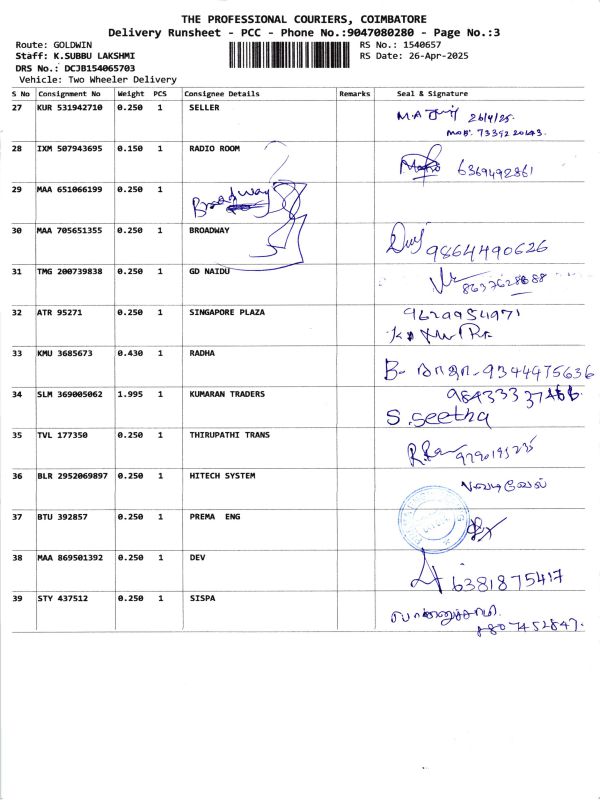 THE PROFESSIONAL COURIERS, COIMBATORE
Delivery Runsheet - PCC - Phone No.:9047080280 - Page No.:3
Route: GOLDWIN
Staff: K.SUBBU LAKSHMI
DRS No.: DCJB154065703
Vehicle: Two Wheeler Delivery
RS No.: 1540657
RS Date: 26-Apr-2025
S No Consignment No Weight PCS Consignee Details Remarks Seal & Signature
27 KUR 531942710 0.250 1 SELLER M.A 26/4/25.
MOB. 7339220143.
28 IXM 507943695 0.150 1 RADIO ROOM 6369492861
29 MAA 651066199 0.250 1 Broadway
30 MAA 705651355 0.250 1 BROADWAY 9864490626
31 TMG 200739838 0.250 1 GD NAIDU
32 ATR 95271 0.250 1 SINGAPORE PLAZA 9629954971
33 KMU 3685673 0.430 1 RADHA B- ராதா-9344975636
34 SLM 369005062 1.995 1 KUMARAN TRADERS
S.Seetha
35 TVL 177350 0.250 1 THIRUPATHI TRANS 9790195235
36 BLR 2952069897 0.250 1 HITECH SYSTEM
37 BTU 392857 0.250 1 PREMA ENG
38 MAA 869501392 0.250 1 DEV 6381875417
39 STY 437512 0.250 1 SISPA